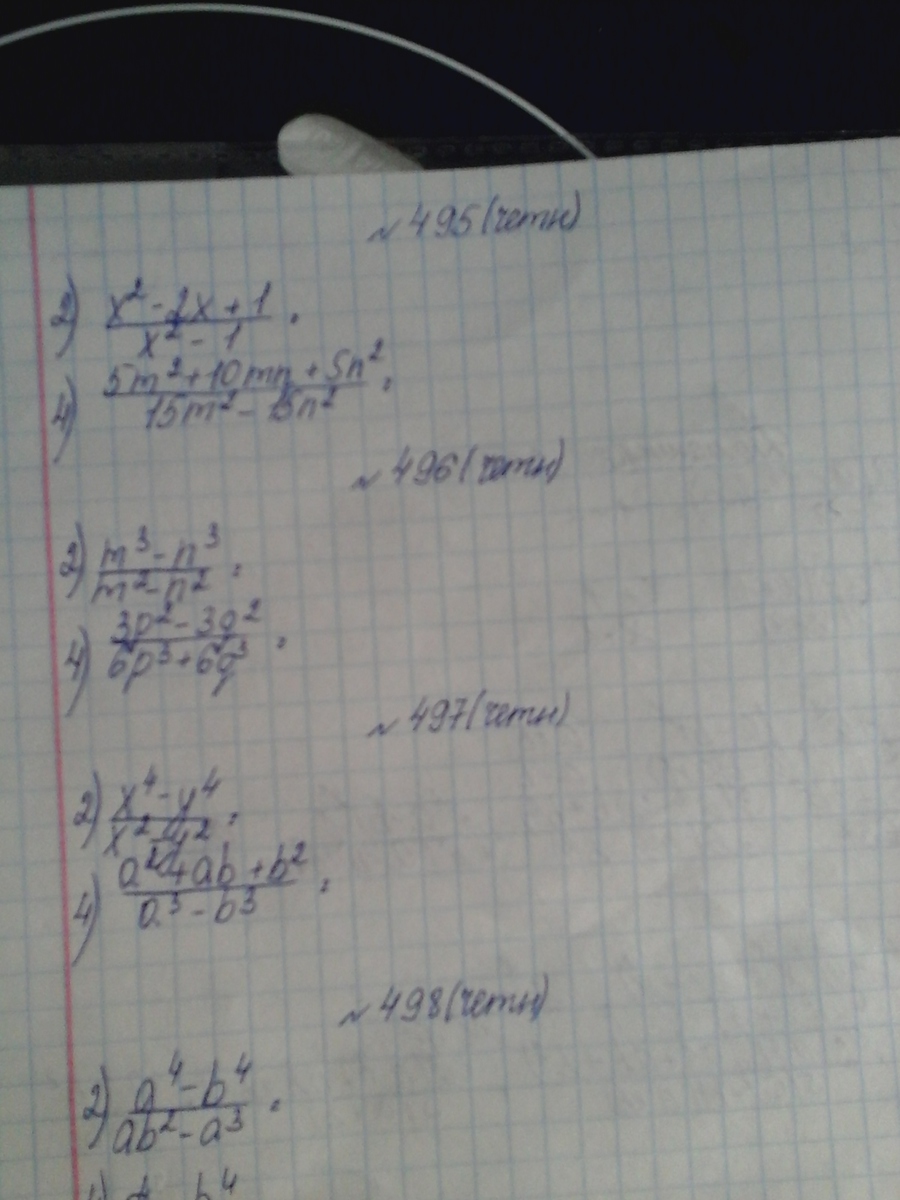 ~ 495(четн)
2) x² - 2x + 1 / x² - 1 .
4) 5m² + 10mn + 5n² / 15m² - 15n² .
~ 496(четн)
2) m³ - n³ / m² - n² .
4) 3p² - 3q² / 6p³ + 6q³ .
~ 497(четн)
2) x⁴ - y⁴ / x² - y² .
4) a² + ab + b² / a³ - b³ .
~ 498(четн)
2) a⁴ - b⁴ / ab² - a³ .